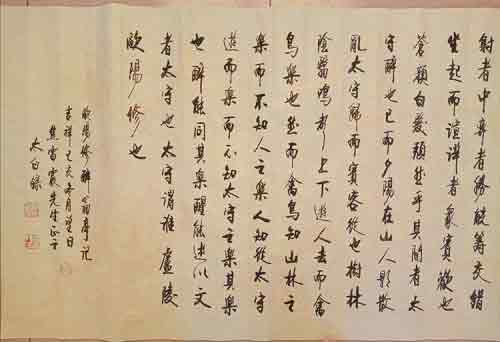 射者中弈者勝觥籌交錯
坐起而諠譁者眾賓歡也
蒼顏白髮頹然乎其間者太
守醉也已而夕陽在山人影散
亂太守歸而賓客從也樹林
陰翳鳴聲上下遊人去而禽
鳥樂也然而禽鳥知山林之
樂而不知人之樂人知從太守
遊而樂而不知太守之樂其樂
也醉能同其樂醒能述以文
者太守也太守謂誰廬陵
歐陽修也
歐陽修醉翁亭記
吉祥冬月望日
先生正之
太白